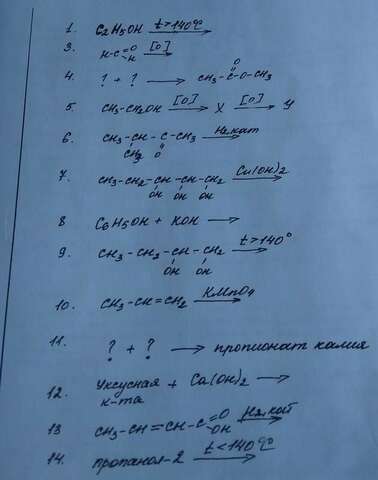 1. C2H5OH t>140°C →
3. H-C=O H [O] →
4. ? + ? → CH3-C-O-CH3 O
5. CH3-CH2OH [O] → X [O] → Y
6. CH3-CH-C-CH3 H2 кат →
CH3 O
7. CH3-CH2-CH-CH-CH2 Cu(OH)2 →
OH OH OH
8 C6H5OH + KOH →
9. CH3-CH2-CH-CH2 t>140° →
OH OH
10. CH3-CH=CH2 KMnO4 →
11. ? + ? → пропионат калия
12. Уксусная + Ca(OH)2 →
к-та
13 CH3-CH=CH-C=O OH H2 кат →
14. пропанол-2 t<140°C →